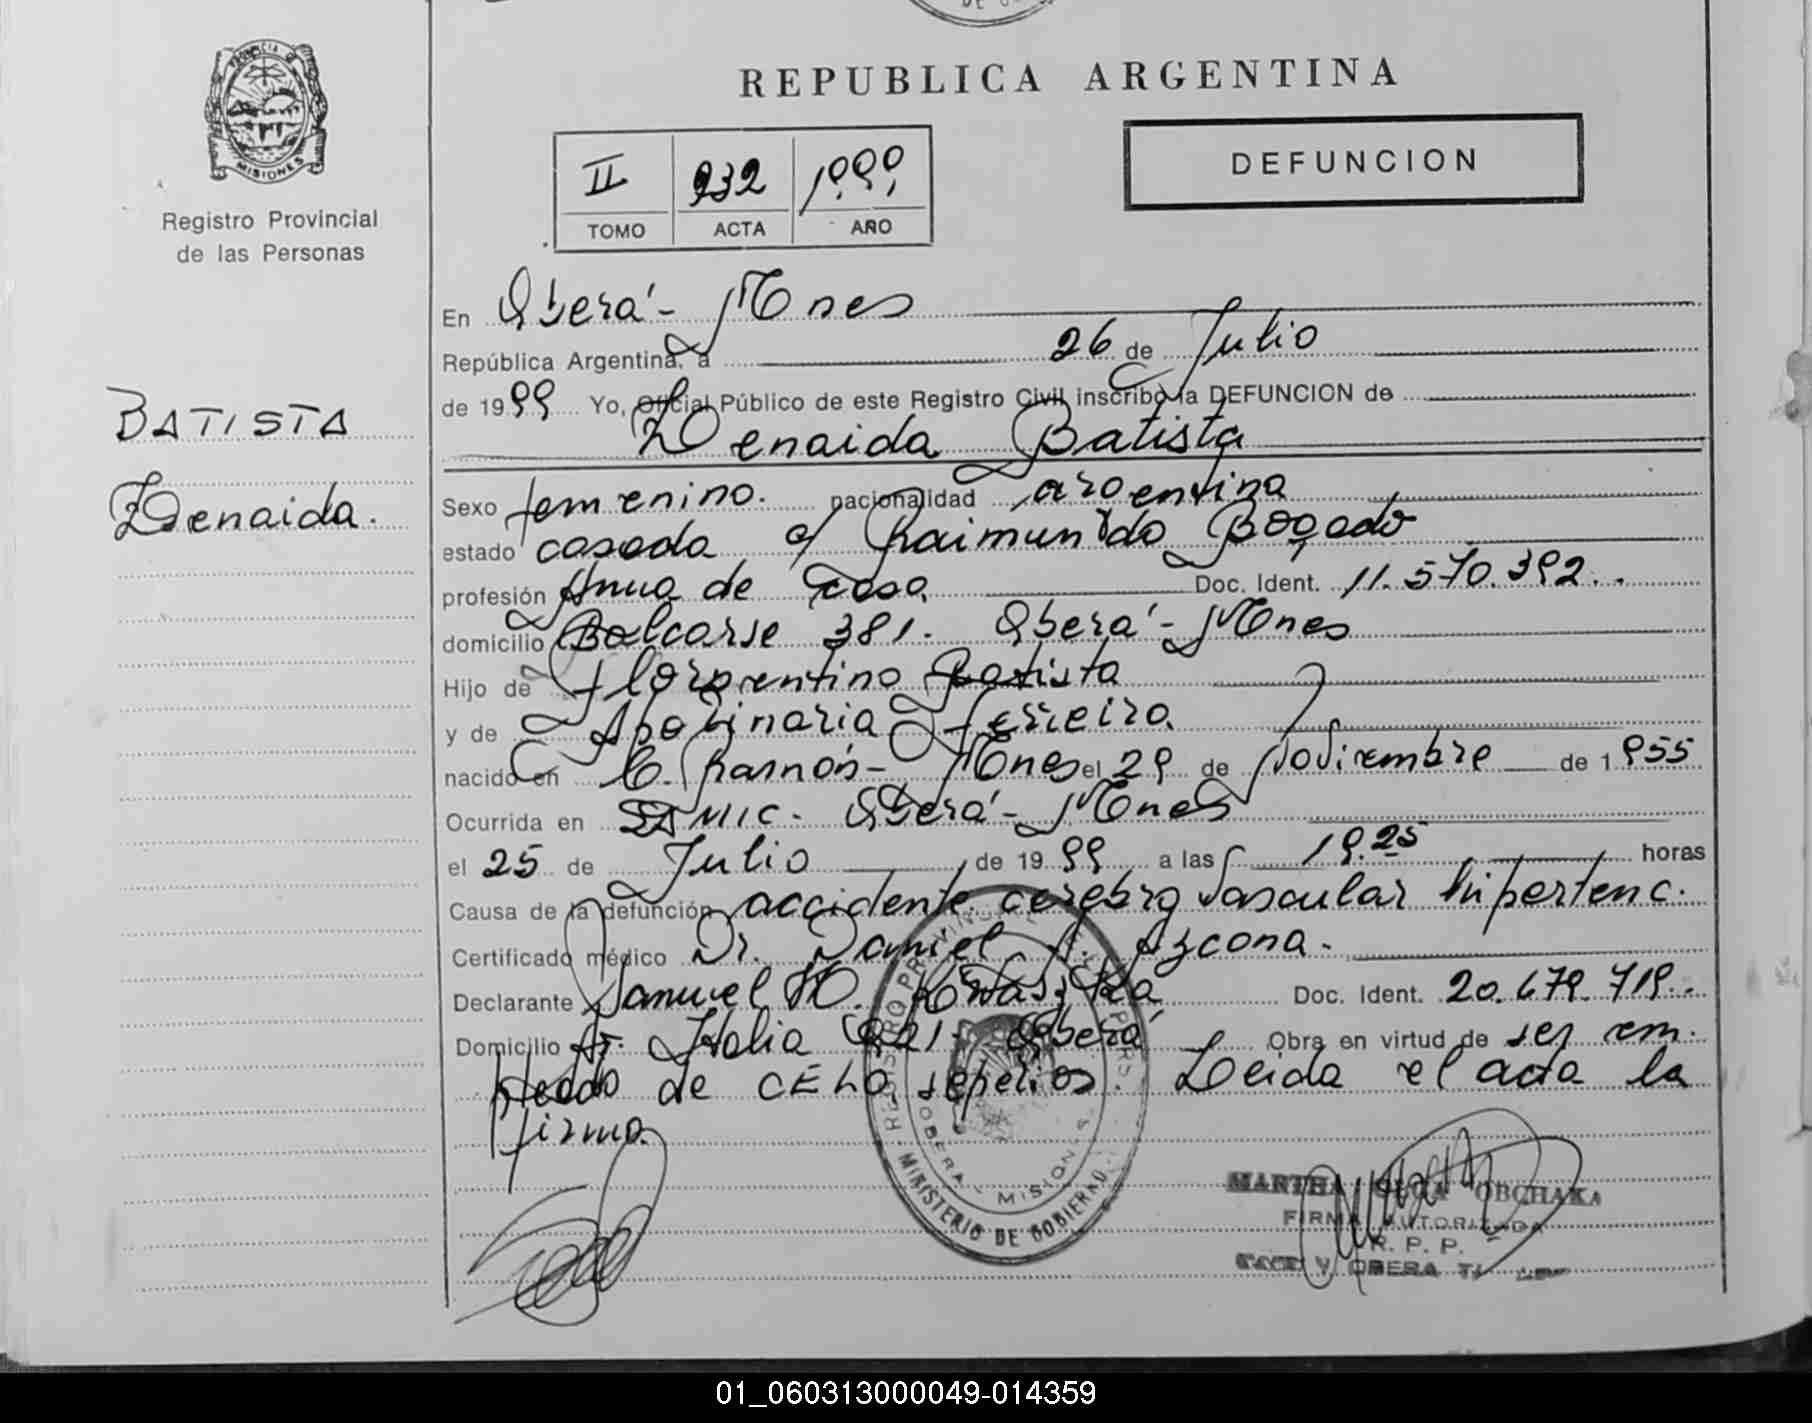 PROVINCIA DE
MISIONES
Registro Provincial
de las Personas
BATISTA
Zenaida.
REPUBLICA ARGENTINA
II 232 1999
TOMO ACTA AÑO
DEFUNCION
En Oberá - Mnes
República Argentina, a 26 de Julio
de 1999 Yo, Oficial Público de este Registro Civil inscribo la DEFUNCION de
Zenaida Batista
Sexo femenino. nacionalidad argentina
estado casada c/ Raimundo Bogado
profesión Ama de Casa Doc. Ident. 11.570.392.
domicilio Balcarse 381. Oberá - Mnes
Hijo de Florentino Batista
y de Apolinaria Ferreira
nacido en C. Ramón - Mnes el 29 de Noviembre de 1955
Ocurrida en SAMIC. Oberá - Mnes
el 25 de Julio de 1999 a las 19.25 horas
Causa de la defunción accidente cerebro vascular hipertenc.
Certificado médico Dr. Daniel A. Azcona.
Declarante Samuel Doc. Ident. 20.679.719.
Domicilio Av. Italia Oberá Obra en virtud de ser em.
pleado de CELO sepelios. Leida el acta la
firma.
REGISTRO PROVINCIAL DE LAS PERSONAS
OBERA - MISIONES
MINISTERIO DE GOBIERNO
MARTHA OLGA OBCHAKA
FIRMA AUTORIZADA
R. P. P.
OBERA
01_060313000049-014359